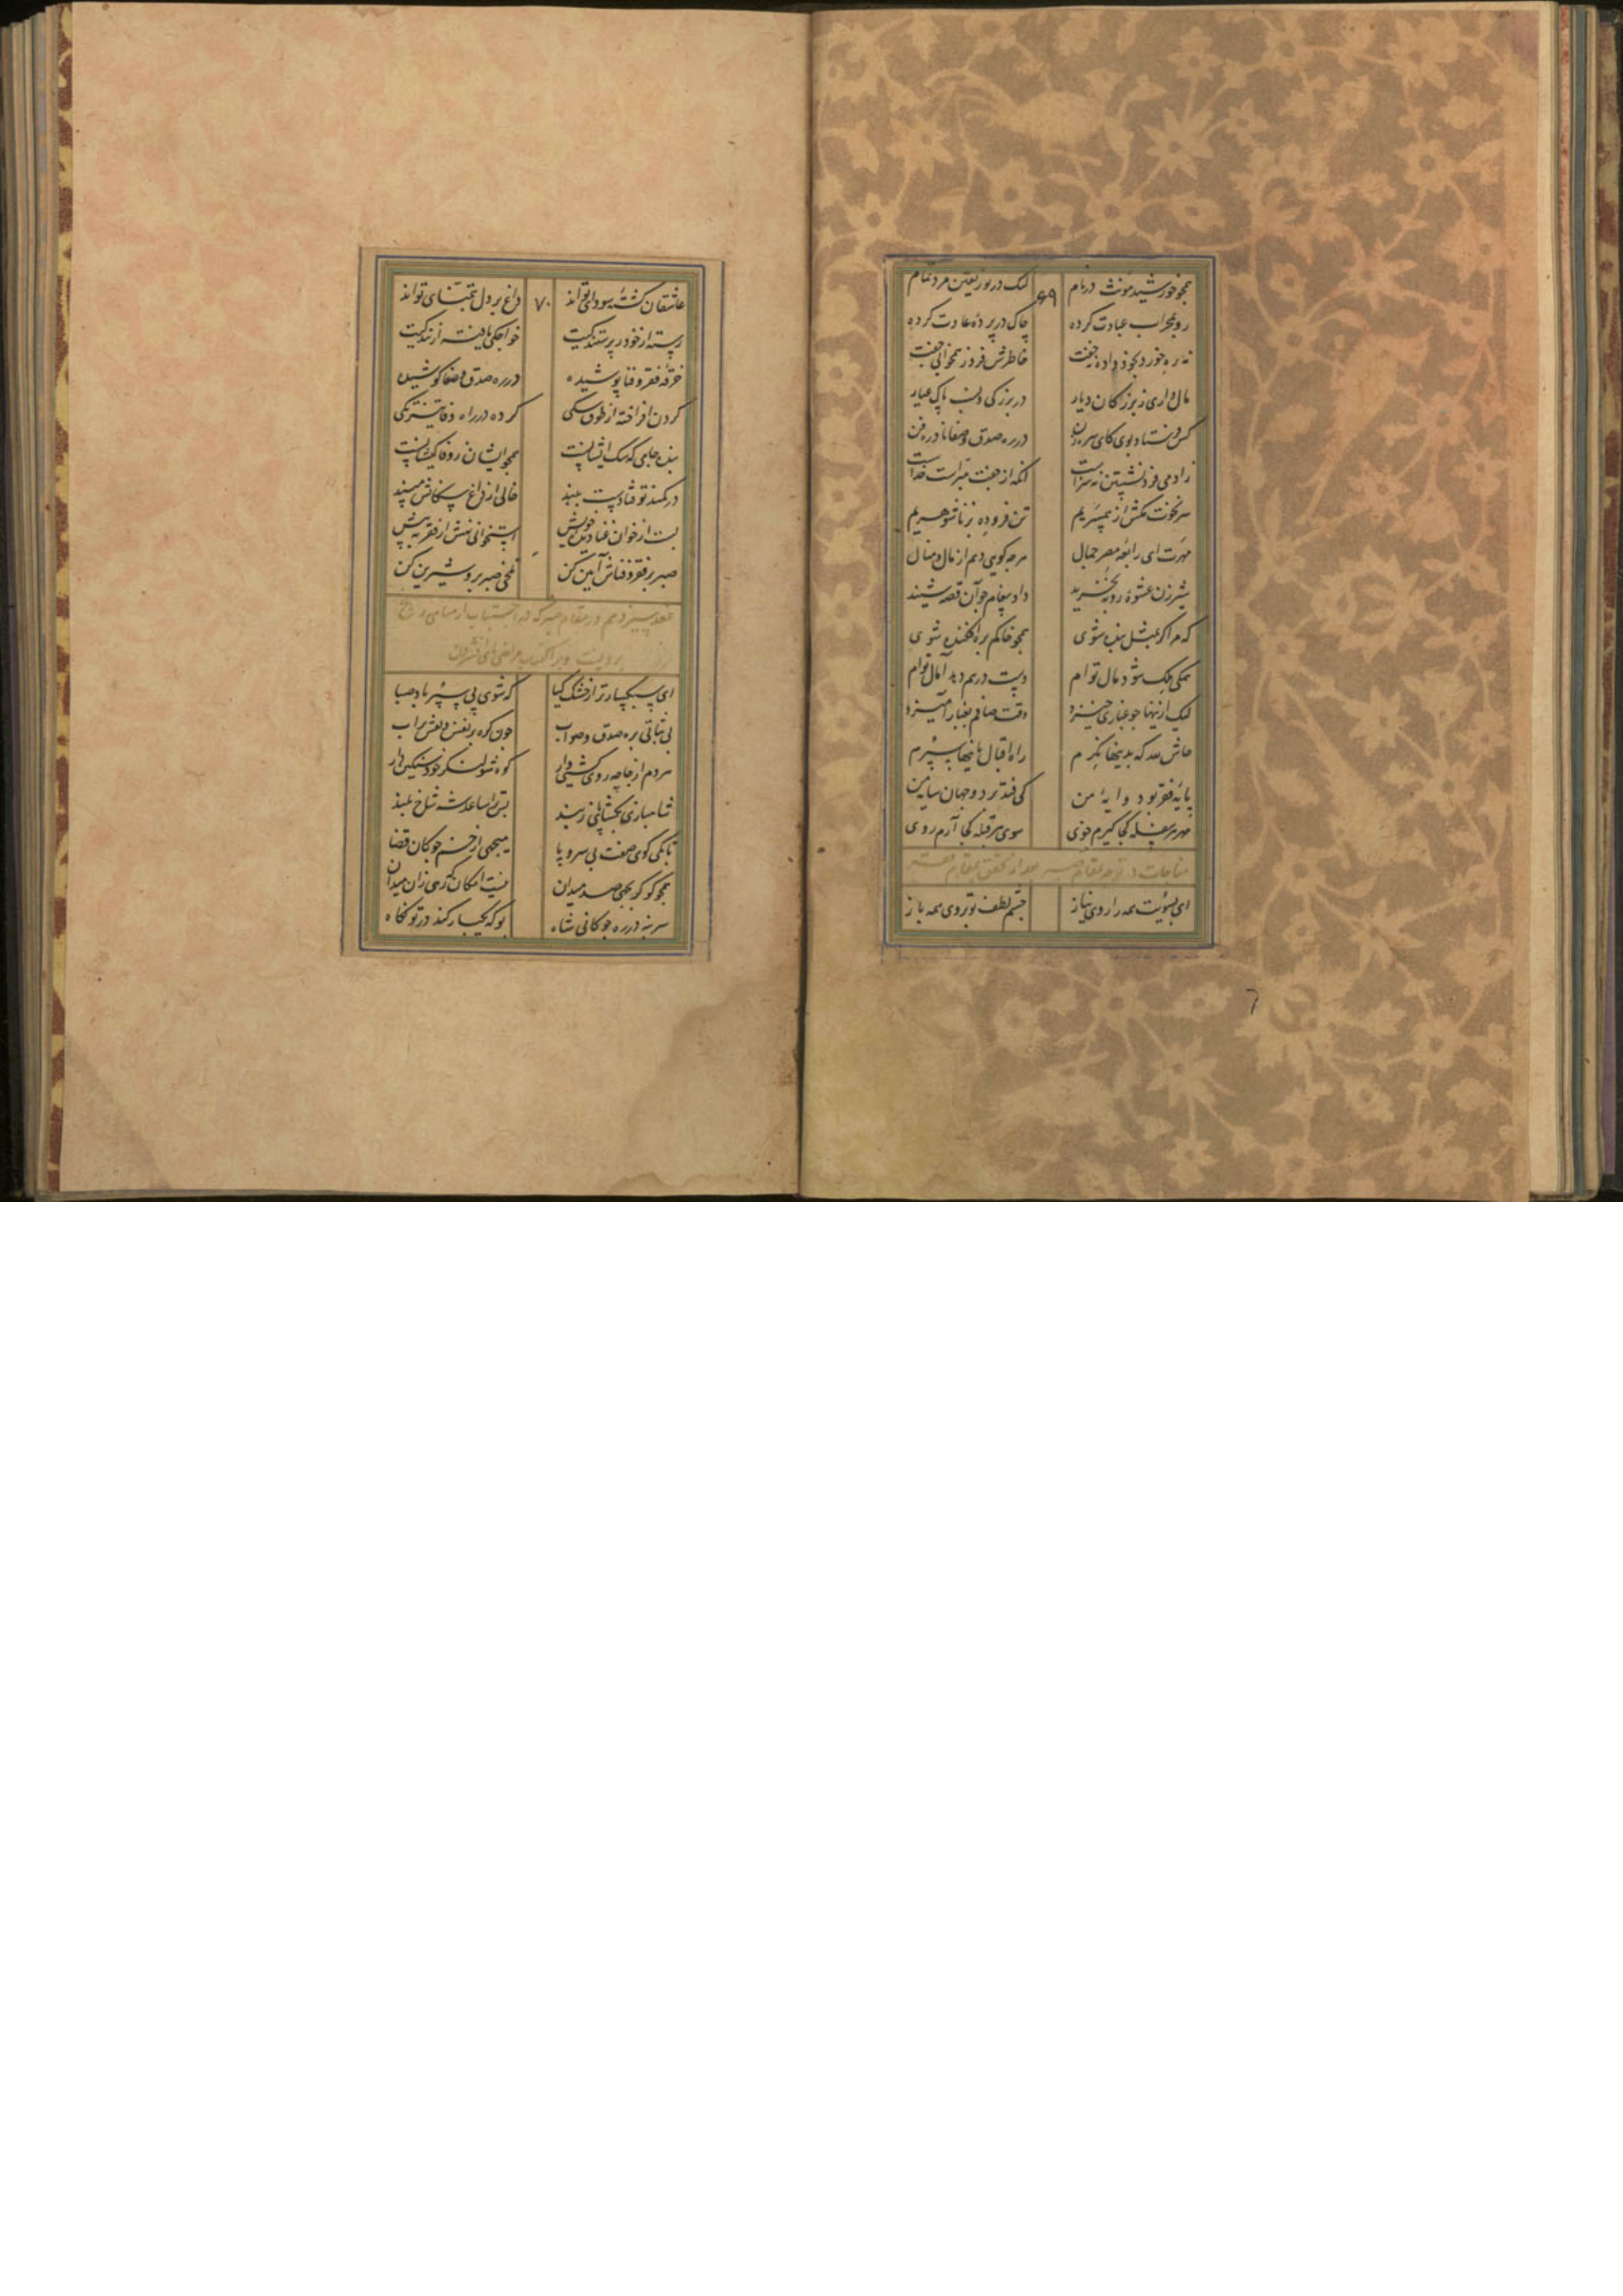 همچو خورشید مؤنث در نام لیک در نور یقین مرد تمام
۶۹
رو بمحراب عبادت کرده چاک در پرده عادت کرده
نه بره خورد و بخود داده نه جفت خاطرش فرد ز همخوابی جفت
مال داری ز بزرگان دیار در بزرگی و نسب پاک عیار
کس فرستاد بوی کای سره زن در ره صدق و صفا نادره فن
ز آدمی فرد نشستن نه سزاست آنکه از جفت مبراست خداست
سر نخوت مکش از همسریم تن فروده بزناشوهریم
مهرت ای رابعه مصر جمال هر چه گویی دهم از مال و منال
شیرزن عشوه روبه نخرید داد پیغام چو آن قصه شنید
که مرا گر بمثل بنده شوی همچو خاکم براه افکنده شوی
همگی ملک شود مال توام دست در هم دهد آمال توام
لیک ازینها چو غباری خیزد وقت صافم بغبار آمیزد
حاش لله که بدینها نگرم راه اقبال باینها سپرم
پایه فقر بود وایه من کی فتد بر دو جهان سایه من
مهر هر سفله کجا گیرم خوی سوی هر قبله کجا آرم روی
مناجات در
ای بسویت همه را روی نیاز چشم لطف تو بروی همه باز
عاشقان کشته سودای تواند داغ بر دل ز تمنای تواند
۷۰
رسته از خود بپرستندگیت خواجگی یافته از بندگیت
خرقه فقر و فنا پوشیده در ره صدق و صفا کوشیده
گردن افراخته از طوق سگی کرده در راه وفا تیزتگی
بنده جامی که سگ ایشانست همچو ایشان ز وفا کیشانست
در کمند تو فتادست ببند خالی از داغ سگانش مپسند
بست از خوان غنا دیده خویش استخوانی نهش از فقر به پیش
صبر بر فقر و فناش آیین کن تلخی صبر برو شیرین کن
عقد سیزدهم در مقام صبر که در اجتناب از مناهی
ای سبکسارتر از خشک گیا که شوی پی سپر باد صبا
بی ثباتی بره صدق و صواب چون گره بر نفس و نقش بر آب
مردم از جا چه روی کشتی وار کوه شو لنگر خود سنگین دار
شاهبازی بگشا بانی رسند بس ترا ساعد شه شاخ بلند
تا بکی گوی صفت بی سر و پا میجهی از خم چوگان قضا
همچو گو گر بجهی صد میدان نیست امکان که رهی زان میدان
سر بنه در ره چوگانی شاه بو که یکبار کند در تو نگاه